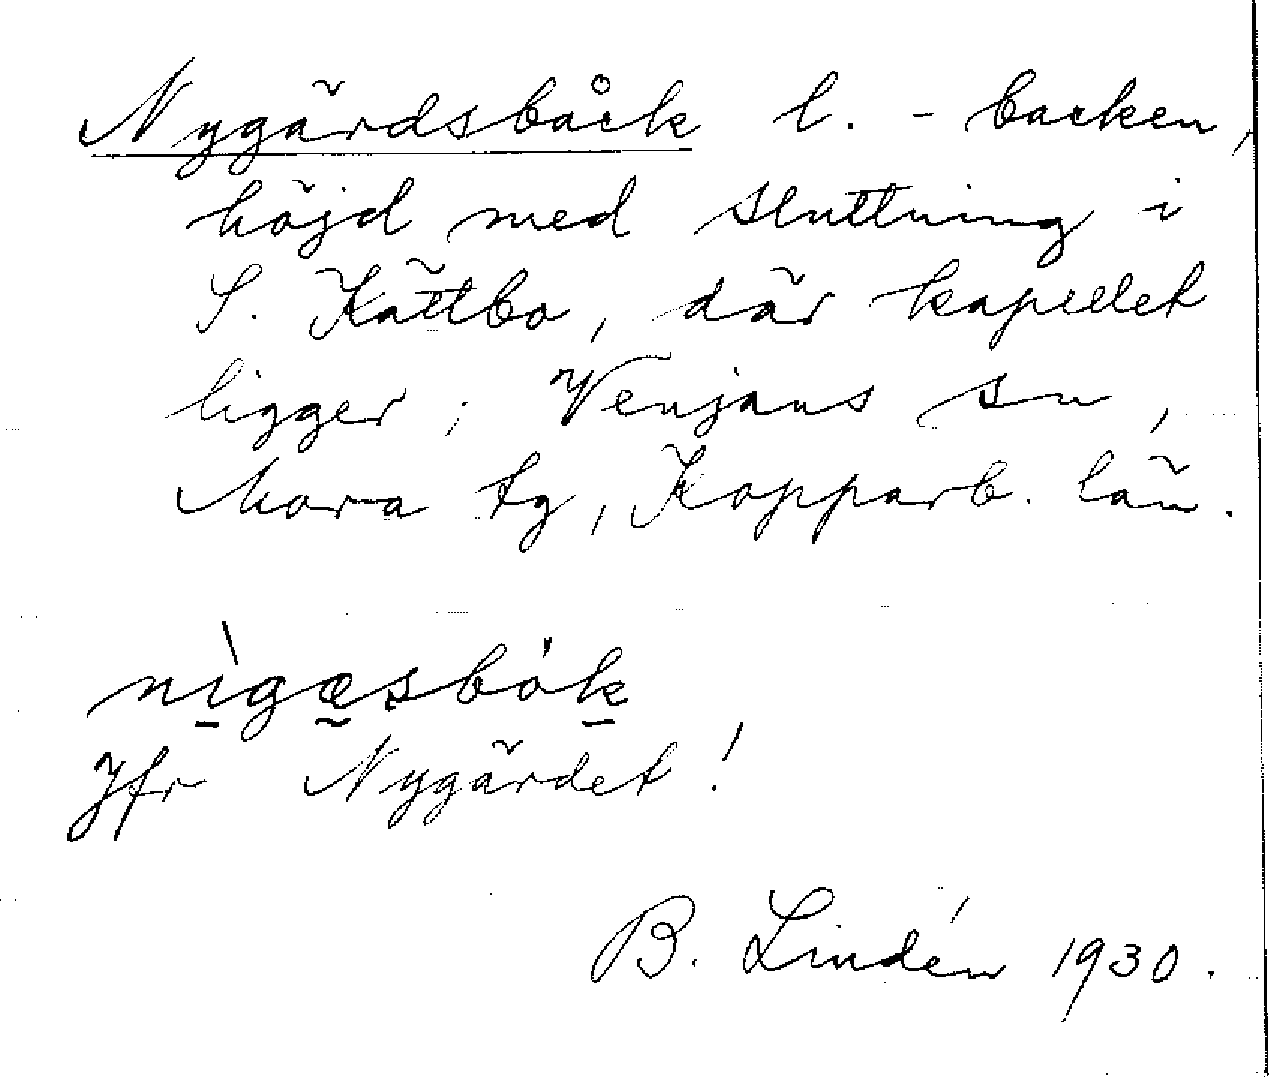 Nygärdsbåck l. -backen,
höjd med sluttning i
S. Kättbo, där kapellet
ligger; Venjans sn,
Mora tg, Kopparb. län.
nìgæsbók
Jfr Nygärdet!
B. Lindén 1930.